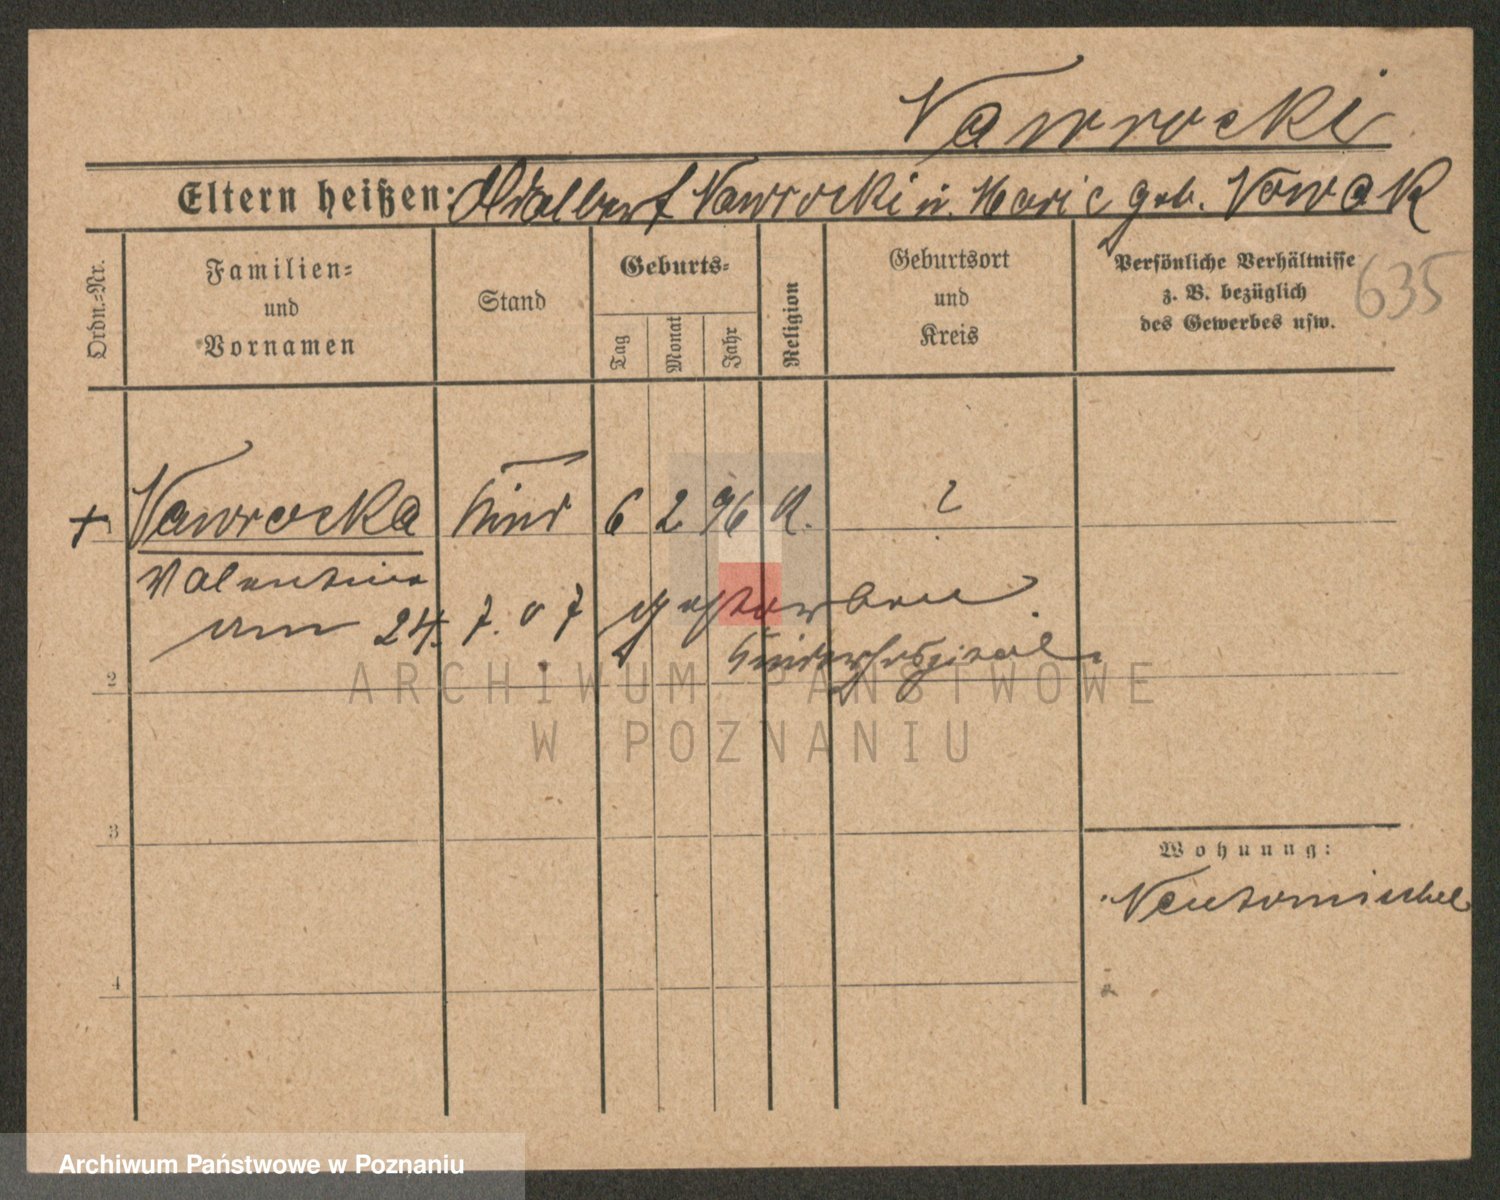 Nawrocki
Eltern heißen: Adalbert Nawrocki u. Marie geb. Nowak
Ordn.=Nr.
Familien=
und
Vornamen
Stand
Geburts=
Tag
Monat
Jahr
Religion
Geburtsort
und
Kreis
Persönliche Verhältnisse
z. B. bezüglich
des Gewerbes usw.
635
+ 1 Nawrocka Kind 6 2 96 K. ?
Valentina
am 24. 7. 07 gestorben
Kinderhospital.
2
ARCHIWUM PAŃSTWOWE
W POZNANIU
3
Wohnung:
Neutomischel
4
Archiwum Państwowe w Poznaniu